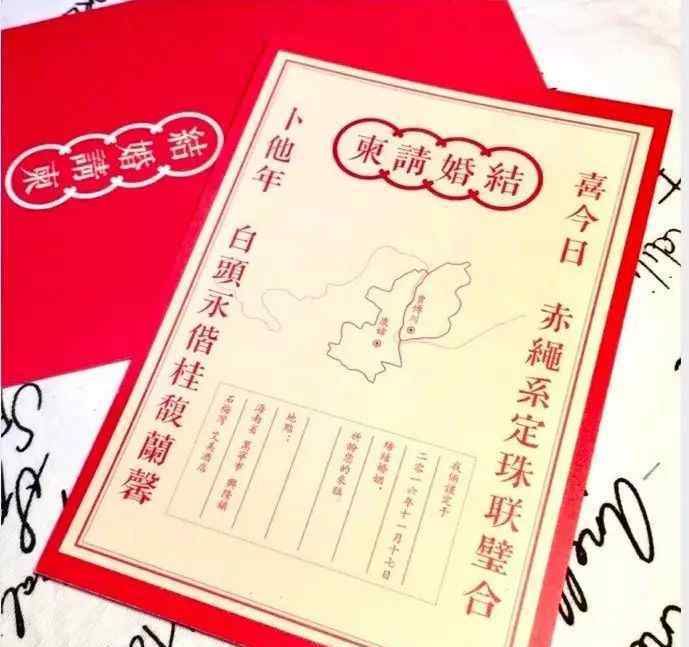 結婚請柬
結婚請柬
喜今日 赤繩系定珠联璧合
卜他年 白頭永偕桂馥蘭馨
我倆謹定于
二零一六年十一月十七日
締結婚姻,
盼您的來臨
地點:
海南省 萬寧市 興隆鎮
石梅灣 艾美酒店